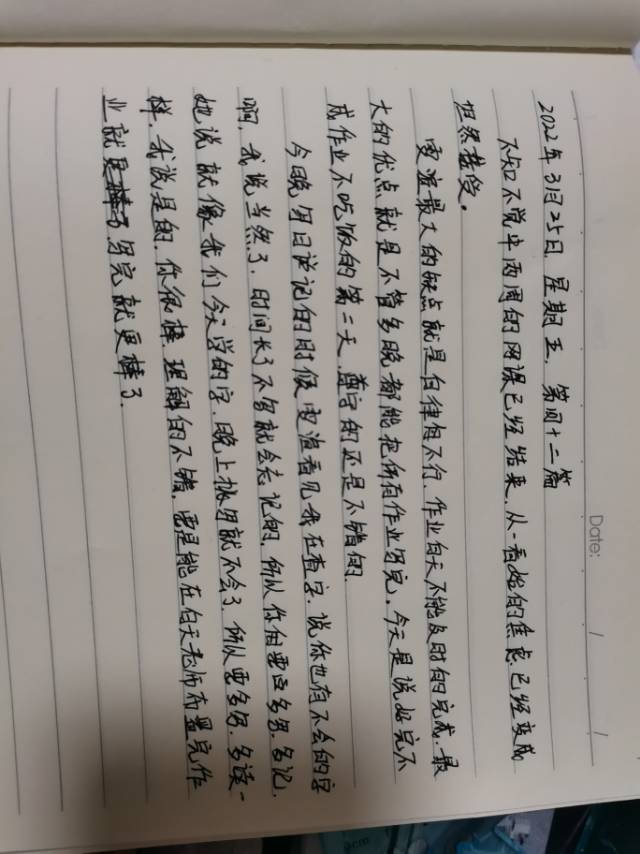 Date: / /
2022年3月25日 星期五 第四十二篇
不知不觉中两周的网课已经结束,从一开始的焦虑已经变成
坦然接受。
雯渲最大的缺点就是自律性不行,作业白天不能及时的完成,最
大的优点就是不管多晚都能把所有作业写完,今天是说好完不
成作业不吃饭的第二天,遵守的还是不错的
今晚写日记的时候雯渲看见我在查字,说你也有不会的字
啊,我说当然了,时间长了不写就会忘记的,所以你们要多写,多记,
她说就像我们今天学的字,晚上报写就不会了所以要多写,多读一
样,我说是的,你很棒,理解的不错,要是能在白天老师布置完作
业就写完就更棒了.